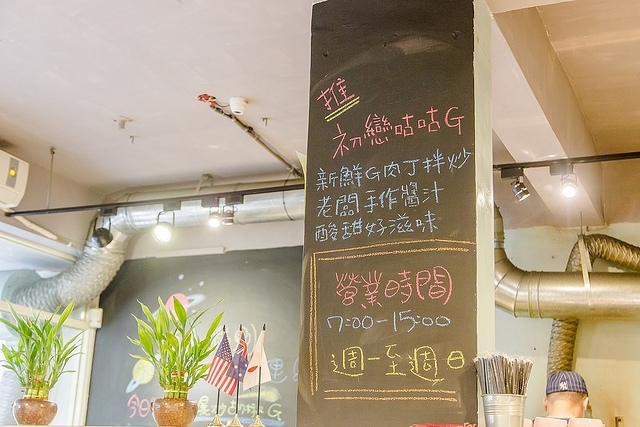 推
初戀咕咕G
新鮮G肉丁拌炒
老闆手作醬汁
酸甜好滋味
營業時間
7:00-15:00
週一至週日